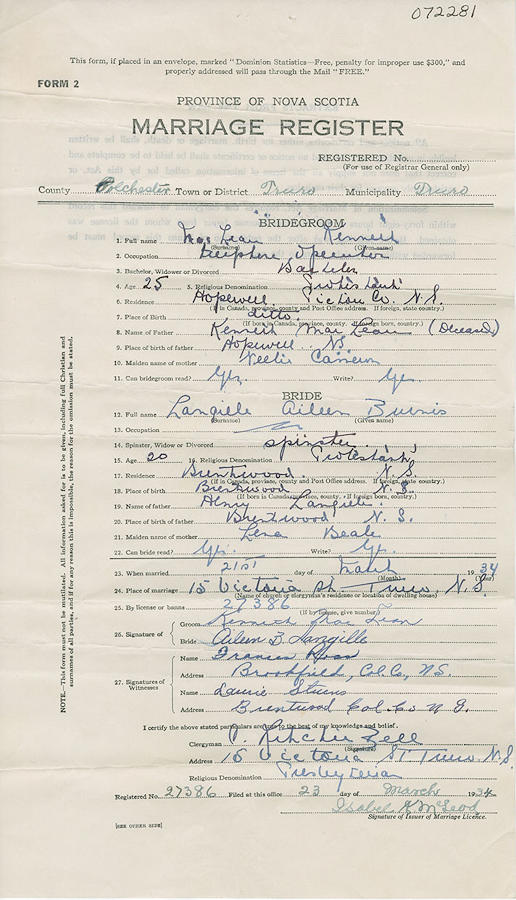 072281
This form, if placed in an envelope, marked "Dominion Statistics—Free, penalty for improper use $300," and
properly addressed will pass through the Mail "FREE."
FORM 2
PROVINCE OF NOVA SCOTIA
MARRIAGE REGISTER
REGISTERED No.
(For use of Registrar General only)
County Colchester Town or District Truro Municipality Truro
BRIDEGROOM
1. Full name Mac Lean Kenneth
(Surname) (Given name)
2. Occupation Telephone Operator
3. Bachelor, Widower or Divorced Bachelor
4. Age 25 5. Religious Denomination Protestant
6. Residence Hopewell Pictou Co. N.S.
(If in Canada, province, county and Post Office address. If foreign, state country)
7. Place of Birth ditto
(If born in Canada, province, county. If foreign born, country)
8. Name of Father Kenneth Mac Lean (Deceased)
9. Place of birth of father Hopewell N.S.
10. Maiden name of mother Nellie Cameron
11. Can bridegroom read? Yes Write? Yes
BRIDE
12. Full name Langille Aileen Burnis
(Surname) (Given name)
13. Occupation
14. Spinster, Widow or Divorced spinster
15. Age 20 16. Religious Denomination Protestant
17. Residence Brentwood N.S.
(If in Canada, province, county and Post Office Address. If foreign, state country)
18. Place of birth Brentwood N.S.
(If born in Canada, province, county. If foreign born, country)
19. Name of father Henry Langille
20. Place of birth of father Brentwood N.S.
21. Maiden name of mother Lena Beale
22. Can bride read? Yes Write? Yes
23. When married 21st day of March 1934
(Month) (Year)
24. Place of marriage 15 Victoria St Truro, N.S.
(Name of church or clergyman's residence or location of dwelling house)
25. By license or banns 27386
(If by license, give number)
26. Signature of Groom Kenneth Mac Lean
Bride Aileen B. Langille
27. Signatures of Witnesses Name Frances Ross
Address Brookfield, Col. Co., N.S.
Name Laurie
Address Brentwood Col. Co N.S.
I certify the above stated particulars are true to the best of my knowledge and belief.
Clergyman D. Ritchie Bell
(Signature)
Address 15 Victoria St Truro N.S.
Religious Denomination Presbyterian
Registered No. 27386 Filed at this office 23 day of March 1934
Isabel K McLeod
Signature of Issuer of Marriage Licence.
[SEE OTHER SIDE]
NOTE.—This form must not be mutilated. All information asked for is to be given, including full Christian and
surnames of all parties, and if for any reason this is impossible, the reason for the omission must be stated.